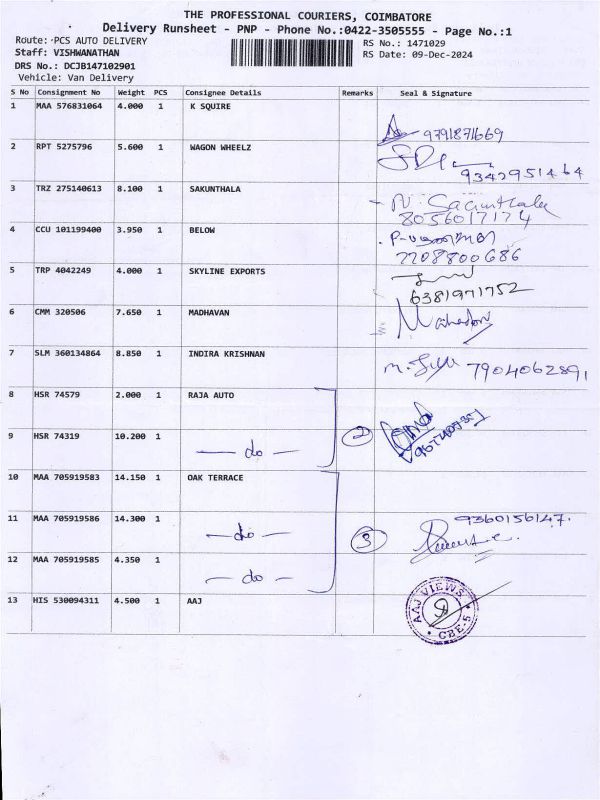 THE PROFESSIONAL COURIERS, COIMBATORE
Delivery Runsheet - PNP - Phone No.:0422-3505555 - Page No.:1
Route: PCS AUTO DELIVERY RS No.: 1471029
Staff: VISHWANATHAN RS Date: 09-Dec-2024
DRS No.: DCJB147102901
Vehicle: Van Delivery
S No Consignment No Weight PCS Consignee Details Remarks Seal & Signature
1 MAA 576831064 4.000 1 K SQUIRE
9791871669
2 RPT 5275796 5.600 1 WAGON WHEELZ
9342951464
3 TRZ 275140613 8.100 1 SAKUNTHALA
N. Sacunthala
8056017174
4 CCU 101199400 3.950 1 BELOW
2208800686
5 TRP 4042249 4.000 1 SKYLINE EXPORTS
6381971752
6 CMM 320506 7.650 1 MADHAVAN
7 SLM 360134864 8.850 1 INDIRA KRISHNAN
7904062891
8 HSR 74579 2.000 1 RAJA AUTO
9 HSR 74319 10.200 1 — do — 2
10 MAA 705919583 14.150 1 OAK TERRACE
11 MAA 705919586 14.300 1 — do — 3 9360156147.
12 MAA 705919585 4.350 1 — do —
13 HIS 530094311 4.500 1 AAJ
AAJ VIEWS
CBE-5